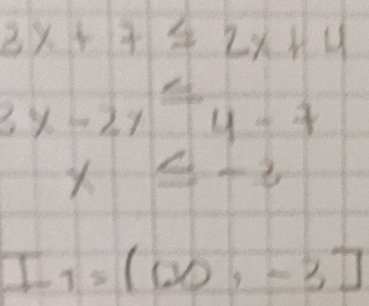 3x + 7 ≤ 2x + 4
3x - 2x ≤ 4 - 7
x ≤ -3
I_1 = (∞, -3]